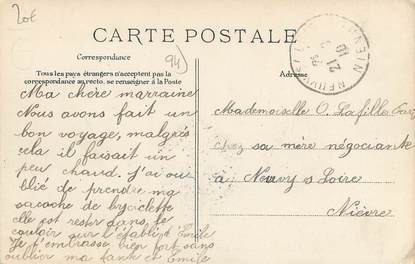 20€
94)
CARTE POSTALE
Correspondance
Tous les pays étrangers n'acceptent pas la
correspondance au recto, se renseigner à la Poste
Adresse
Ma chère marraine
Nous avons fait un
bon voyage, malgrés
cela il faisait un
peu chaud. J'ai ou
blié de prendre ma
sacoche de byciclette
elle est rester dans le
couloir sur l'établi
Je t'embrasse bien fort sans
oublier ma tante et Emile
Emile
Mademoiselle O. Lafille
chez sa mère négociante
à Neuvy s Loire
Nièvre
NIEVRE
21